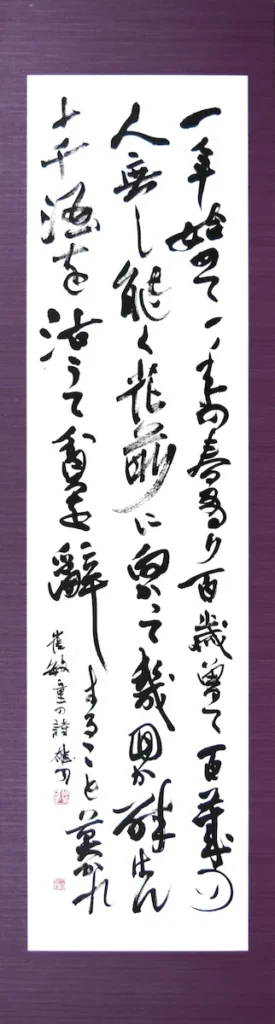 一年始めて一年の春有り百歳曽て百歳の
人無し能く花前に向かつて幾回か酔はん
十千酒を沽うて貧を辞すること莫かれ
崔敏童の詩